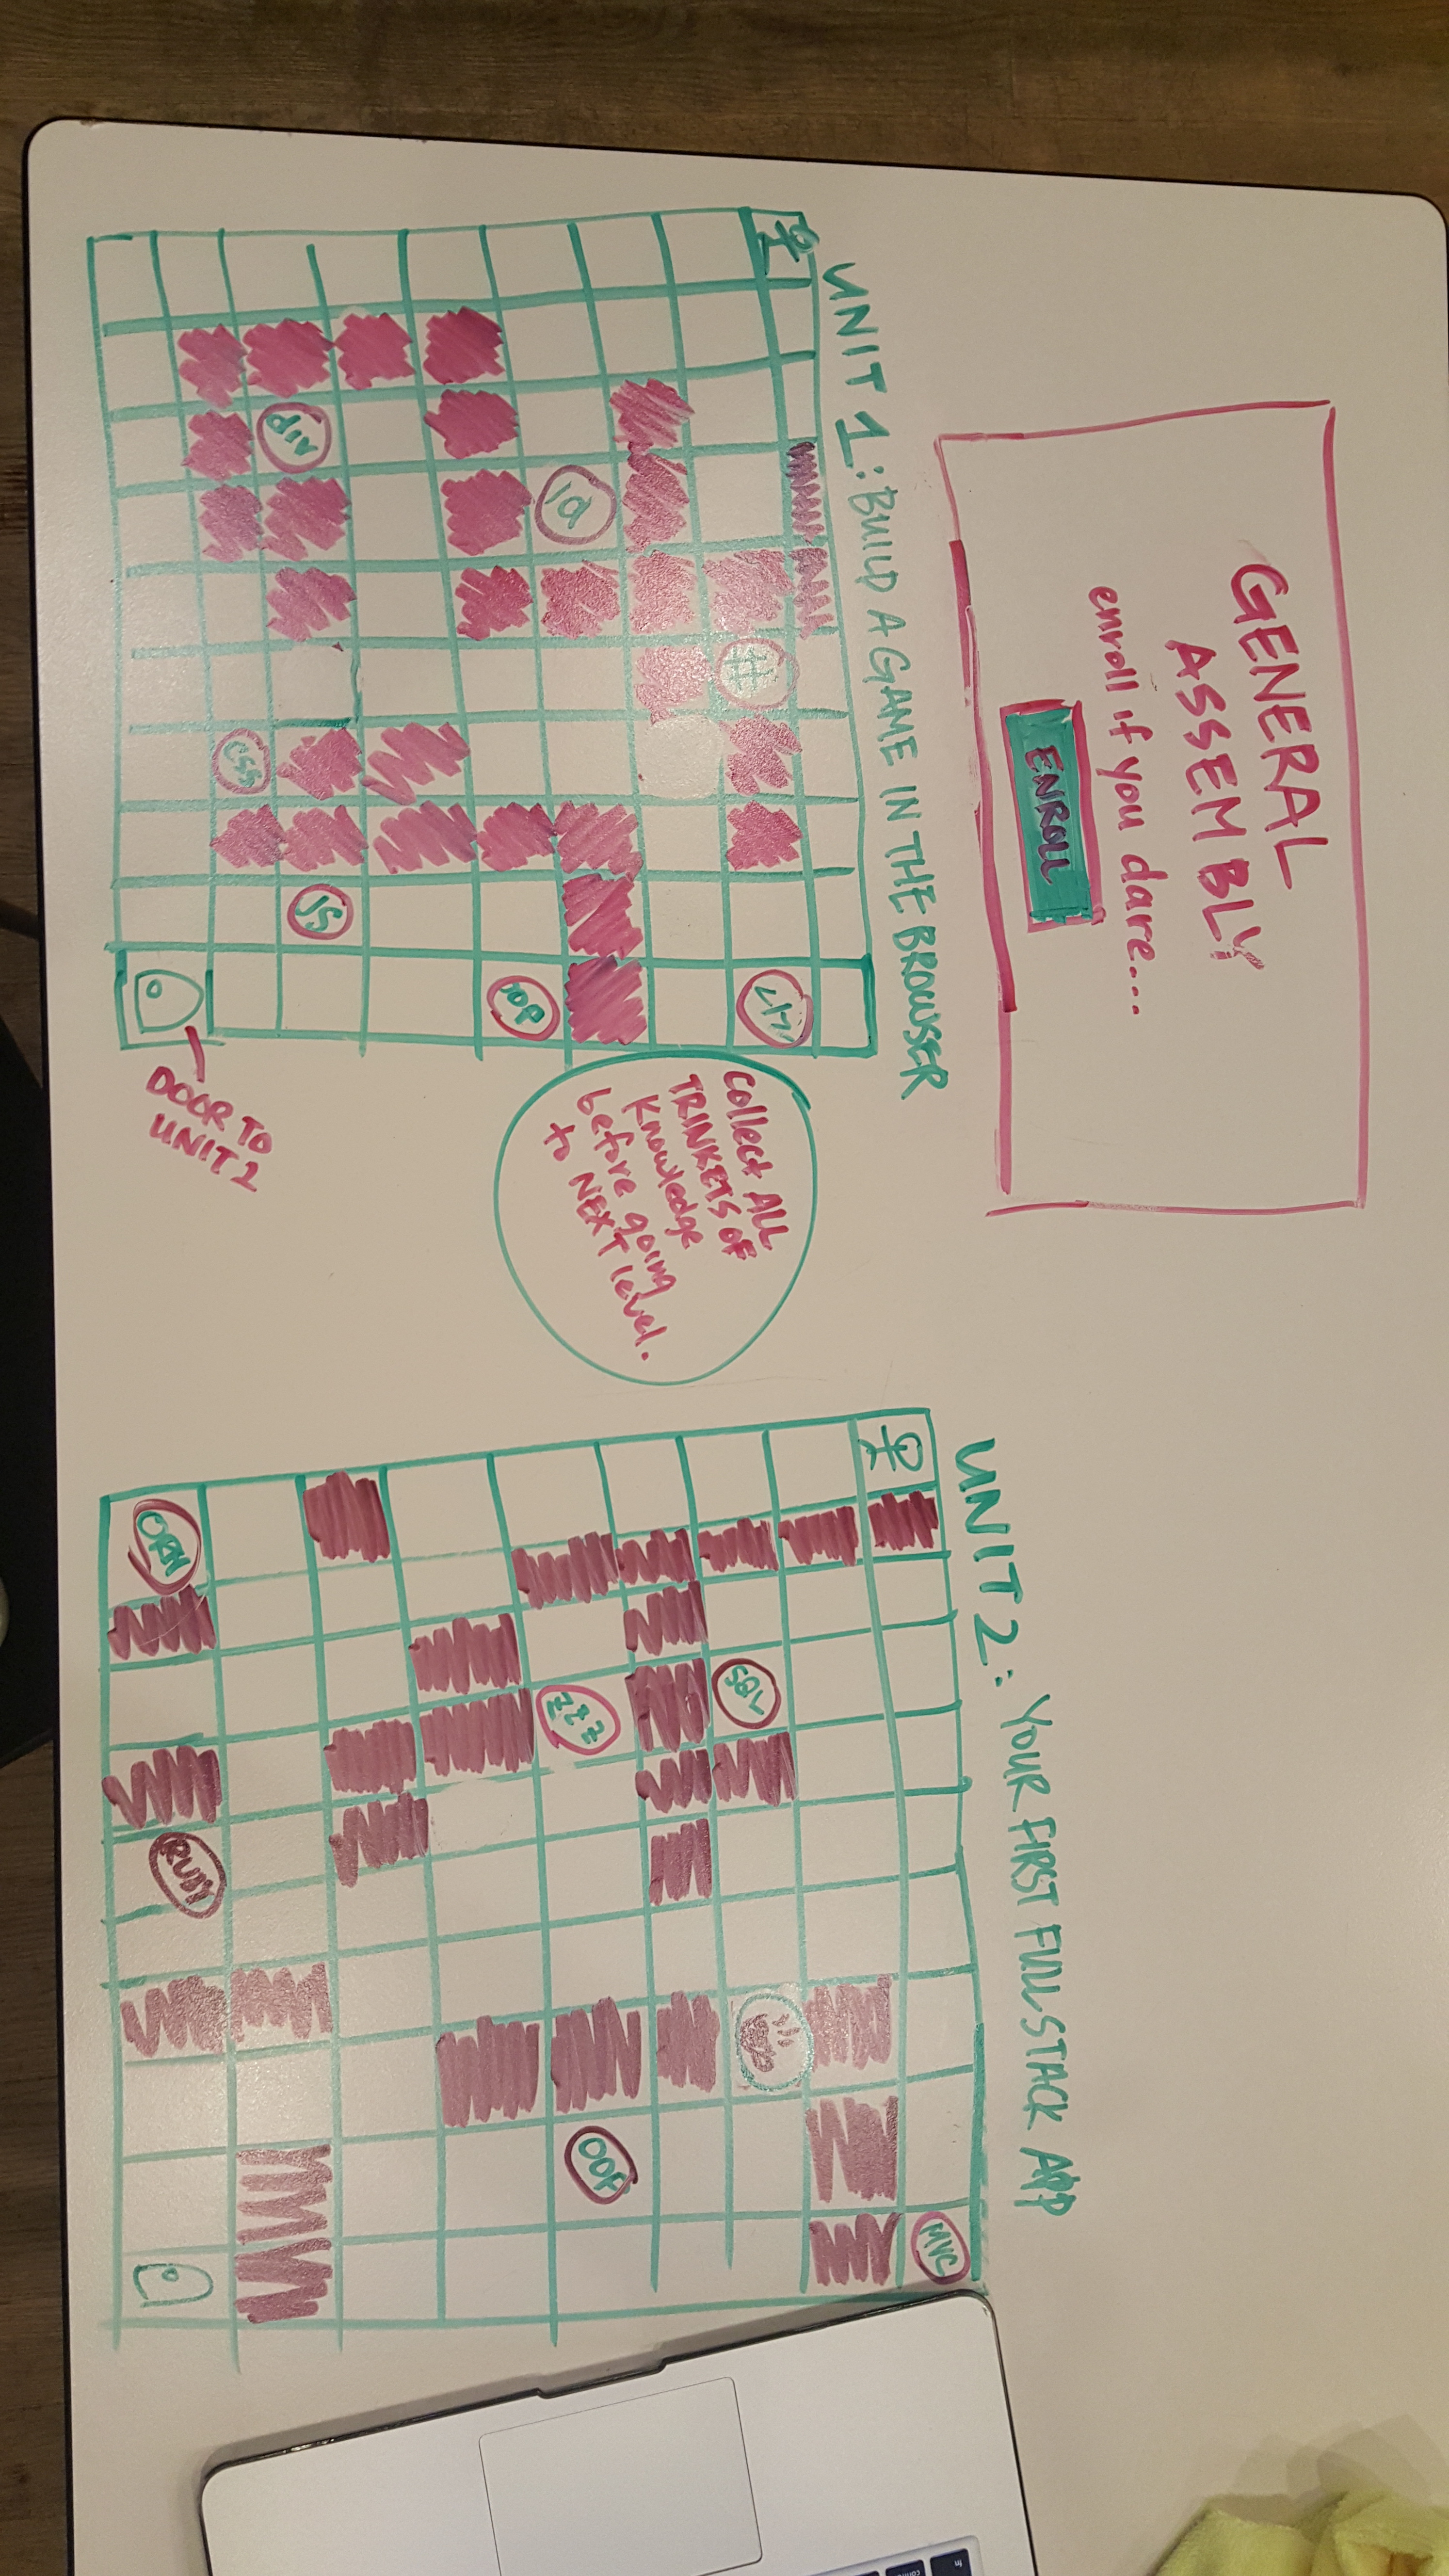 GENERAL
ASSEMBLY
enroll if you dare...
ENROLL
UNIT 1: BUILD A GAME IN THE BROWSER
#
</>
DOM
CSS
JS
DOOR TO
UNIT 2
Collect ALL
TRINKETS OF
Knowledge
before going
to NEXT level.
UNIT 2: YOUR FIRST FULL STACK APP
MVC
SQL
ZZZ
OOP
ORM
RUBY